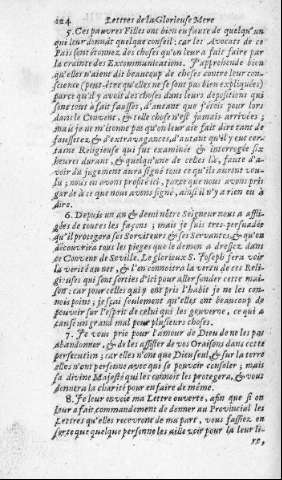 224 Lettres de la Glorieuse Mere
5. Ces pauvres Filles ont bien eu faute de quelqu'un
qui leur donnât quelque conseil: car les Avocats de ce
Païs sont étonnez des choses qu'on leur a fait faire par
la crainte des Excommunications. J'apprehende bien
qu'elles n'aient dit beaucoup de choses contre leur con-
science (peut-être qu'elles ne se sont pas bien expliquées)
parce qu'il y avoit des choses dans leurs depositions qui
sont tout à fait fausses, d'autant que j'étois pour lors
dans le Convent, & telle chose n'est jamais arrivées;
mais je ne m'étonne pas qu'on leur aie fait dire tant de
faussetez, & d'extravagances, d'autant qu'il y eut cer-
taine Religieuse qui fut examinée & interrogée six
heures durant, & quelqu'une de celles là, faute d'a-
voir du jugement aura signé tout ce qu'ils auront vou-
lu; nous en avons profité ici, parce que nous avons pris
garde à ce que nous avons signé, ainsi il n'y a rien en à
dire.
6. Depuis un an & demi nôtre Seigneur nous a affli-
gées de toutes les façons; mais je suis tres-persuadée
qu'il protegera ses Serviteurs & ses Servantes, & qu'on
découvrira tous les pieges que le demon a dressez dans
ce Convent de Seville. Le glorieux S. Joseph fera voir
la verité au net, & l'on connoîtra la vertu de ces Reli-
gieuses qui sont sorties d'ici pour aller fonder cette mai-
son: car pour celles qui y ont pris l'habit je ne les con-
nois point; je sçai seulement qu'elles ont beaucoup de
pouvoir sur l'esprit de celui qui les gouverne, ce qui a
causé un grand mal pour plusieurs choses.
7. Je vous prie pour l'amour de Dieu de ne les pas
abandonner, & de les assister de vos Oraisons dans cette
persecution; car elles n'ont que Dieu seul, & sur la terre
elles n'ont personne avec qui se pouvoir consoler; mais
sa divine Majesté qui les connoît les protegera, & vous
donnera la charité pour en faire de même.
8. Je leur envoie ma Lettre ouverte, afin que si on
leur a fait commandement de donner au Provincial les
Lettres qu'elles recevront de ma part, vous fassiez en
sorte que quelque personne les aille voir pour la leur li-
re,